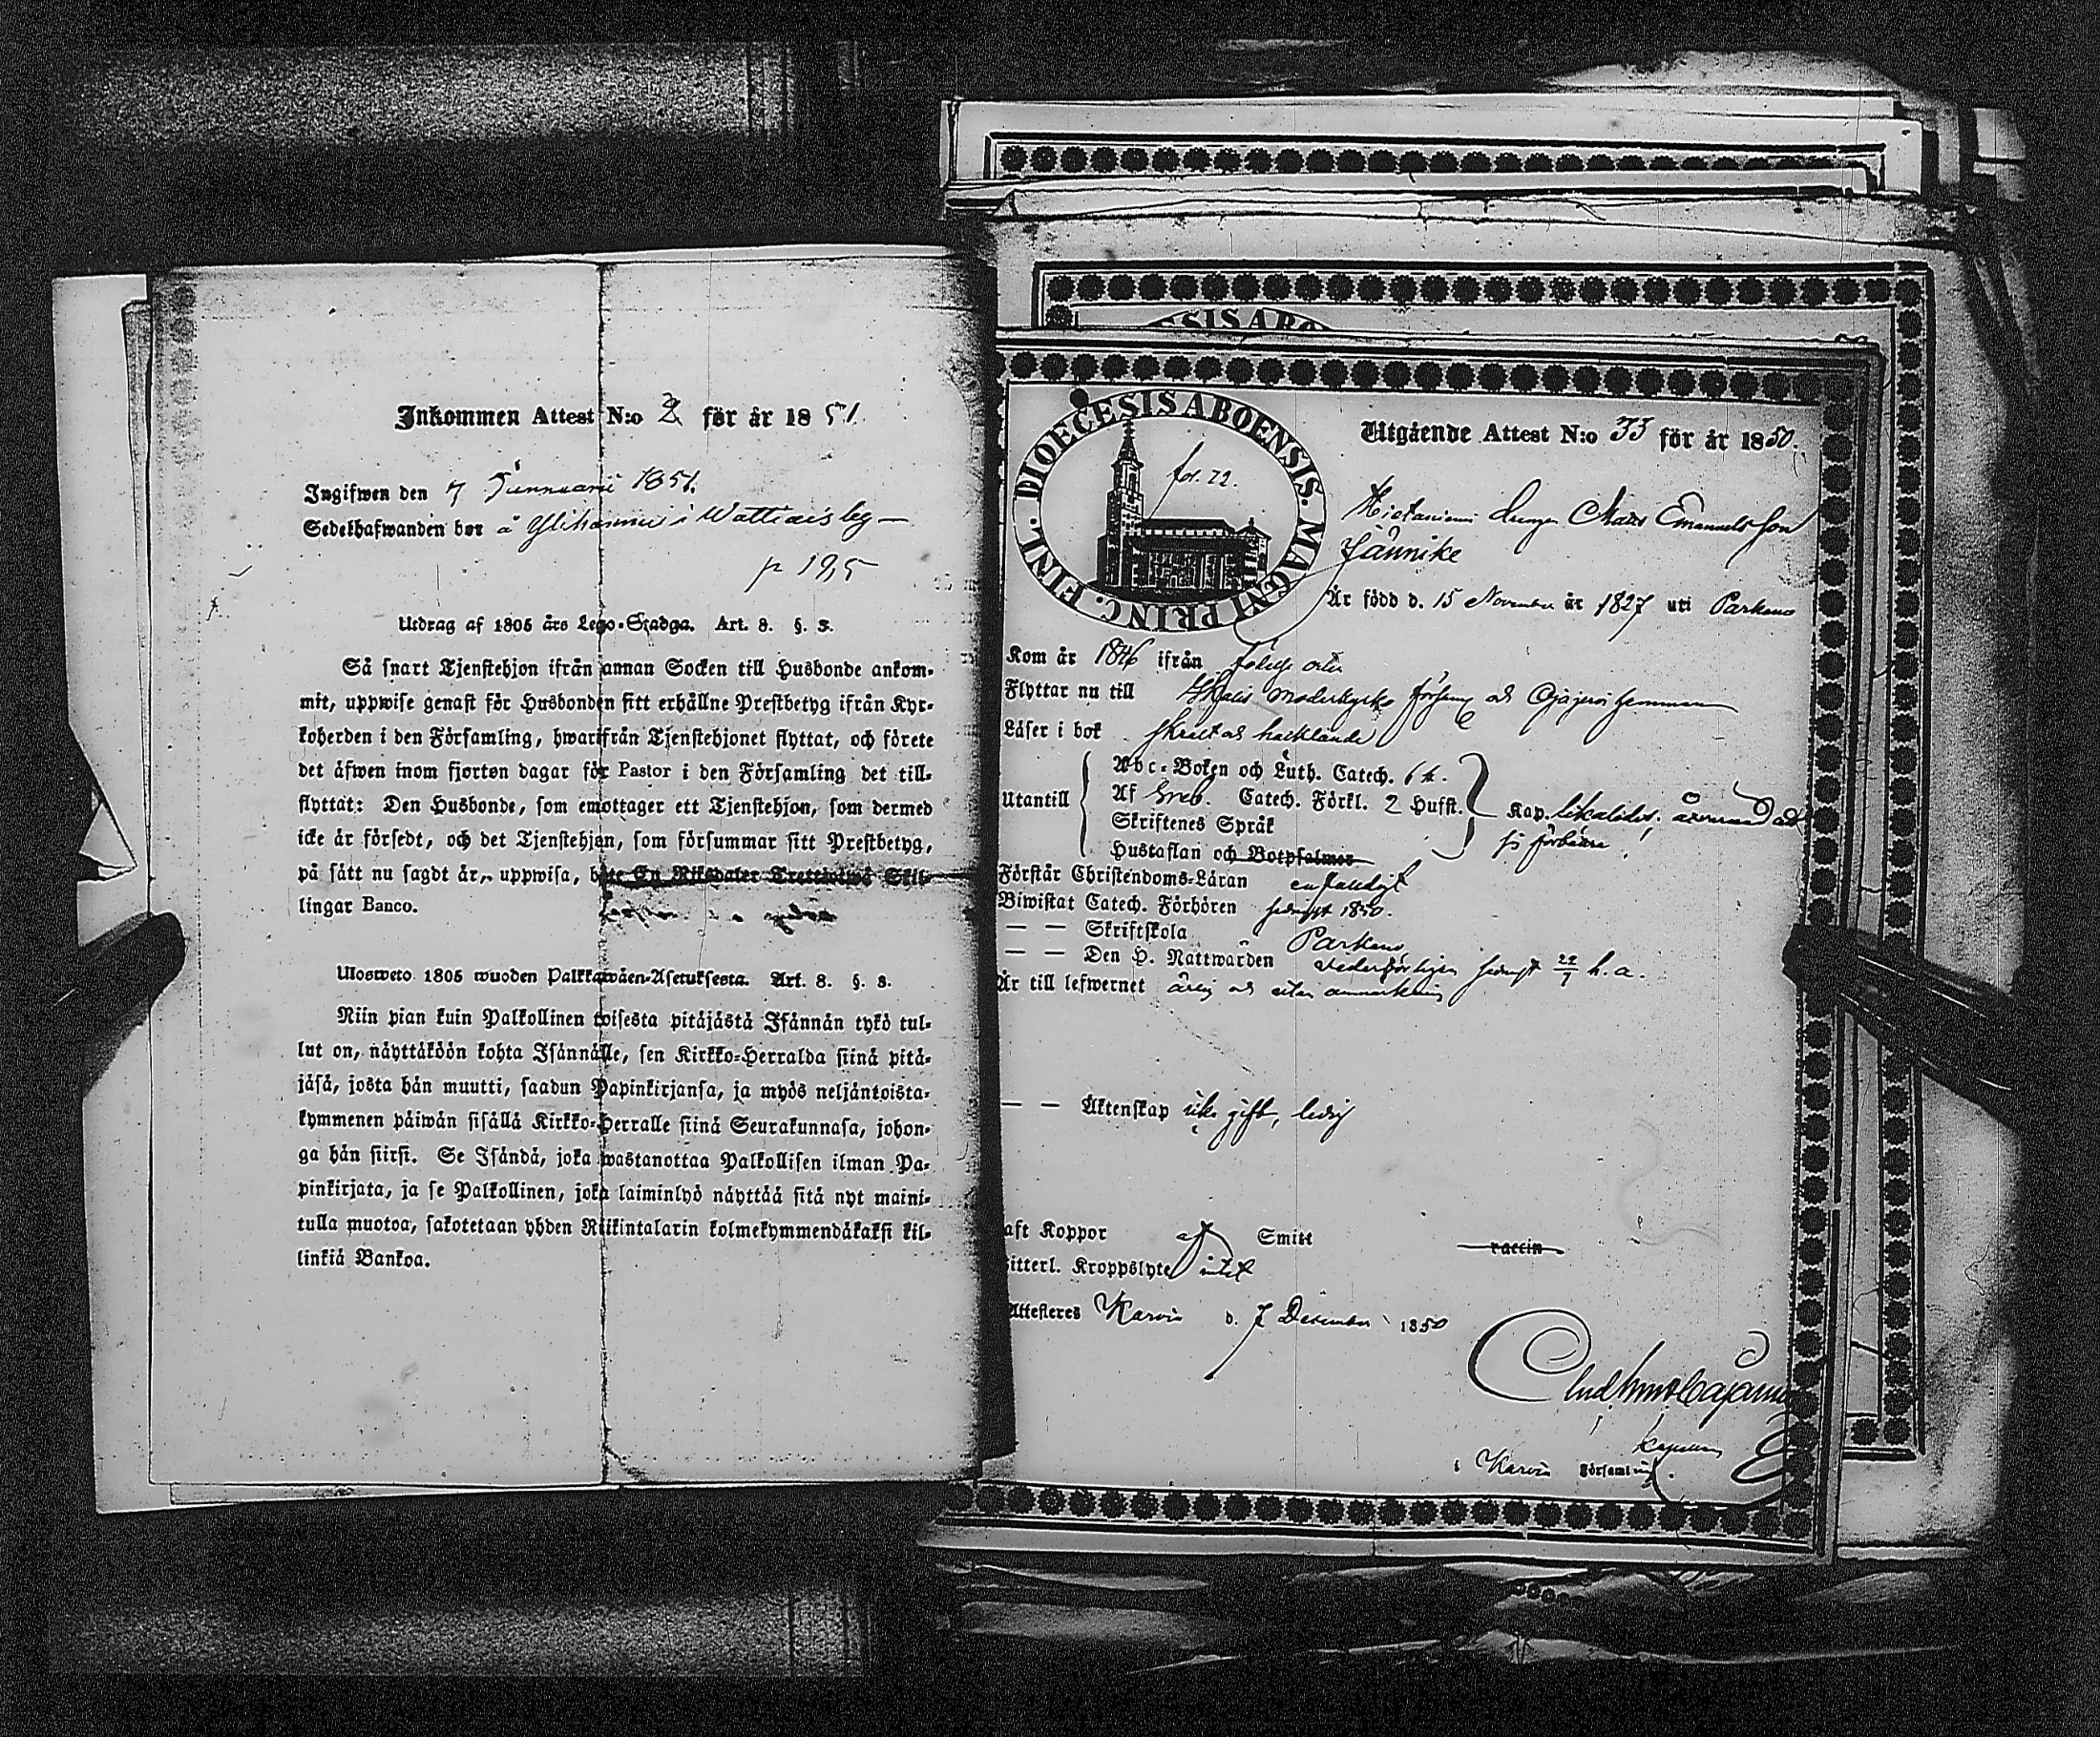 Inkommen Attest N:o 2 för år 1851.
Ingifwen den 7 Januarii 1851.
Sedelhafwanden bor å Ylihannu i Wattiais by —
p 195
Utdrag af 1805 års Lego-Stadga. Art. 8. §. 3.
Så snart Tjenstehjon ifrån annan Socken till Husbonde ankom-
mit, uppwise genast för Husbonden sitt erhållne Prestbetyg ifrån Kyr-
koherden i den Församling, hwarifrån Tjenstehjonet flyttat, och förete
det äfwen inom fjorton dagar för Pastor i den Församling det till-
flyttat: Den Husbonde, som emottager ett Tjenstehjon, som dermed
icke är försedt, och det Tjenstehjon, som försummar sitt Prestbetyg,
på sätt nu sagdt är, uppwisa, böte En Riksdaler Trettiotwå Skil-
lingar Banco.
Ulosweto 1805 wuoden Palkkawäen-Asetuksesta. Art. 8. §. 3.
Niin pian kuin Palkollinen toisesta pitäjästä Isännän tykö tul-
lut on, näyttäköön kohta Isännälle, sen Kirkko-Herralda siinä pitä-
jäsä, josta hän muutti, saadun Papinkirjansa, ja myös neljäntoista-
kymmenen päiwän sisällä Kirkko-Herralle siinä Seurakunnasa, johon-
ga hän siirsi. Se Isändä, joka wastanottaa Palkollisen ilman Pa-
pinkirjata, ja se Palkollinen, joka laiminlyö näyttää sitä nyt maini-
tulla muotoa, sakotetaan yhden Riikintalarin kolmekymmendäkaksi kil-
linkiä Bankoa.
DIOECESIS ABOENSIS. MAGNI PRINC. FINL.
fol. 22.
Utgående Attest N:o 33 för år 1850.
Drengen Mats Emanuelsson
Jännike
Är född d. 15 November år 1827 uti Parkano
Kom år 1846 ifrån
Flyttar nu till moderkyrko
Läser i bok
Utantill
Abc-Boken och Luth. Catech. 6 h.
Af Greb. Catech. Förkl. 2 Hufst.
Skriftenes Språk
Hustaflan och Botpsalmer
Kap. likaledes;
Förstår Christendoms-Läran enfaldigt
Biwistat Catech. Förhören sednast 1850.
— — Skriftskola Parkano
— — Den H. Nattwarden sednast 22/9 h. a.
Är till lefwernet ärlig och utan anmärkning
— — Äktenskap icke gift, ledig
aft Koppor af Smitt vaccin
itterl. Kroppslyte intet
Attesteres Karvia d. 7 December 1850
Cajanus
kapellan
i Karvia Församling.
ESIS ABO